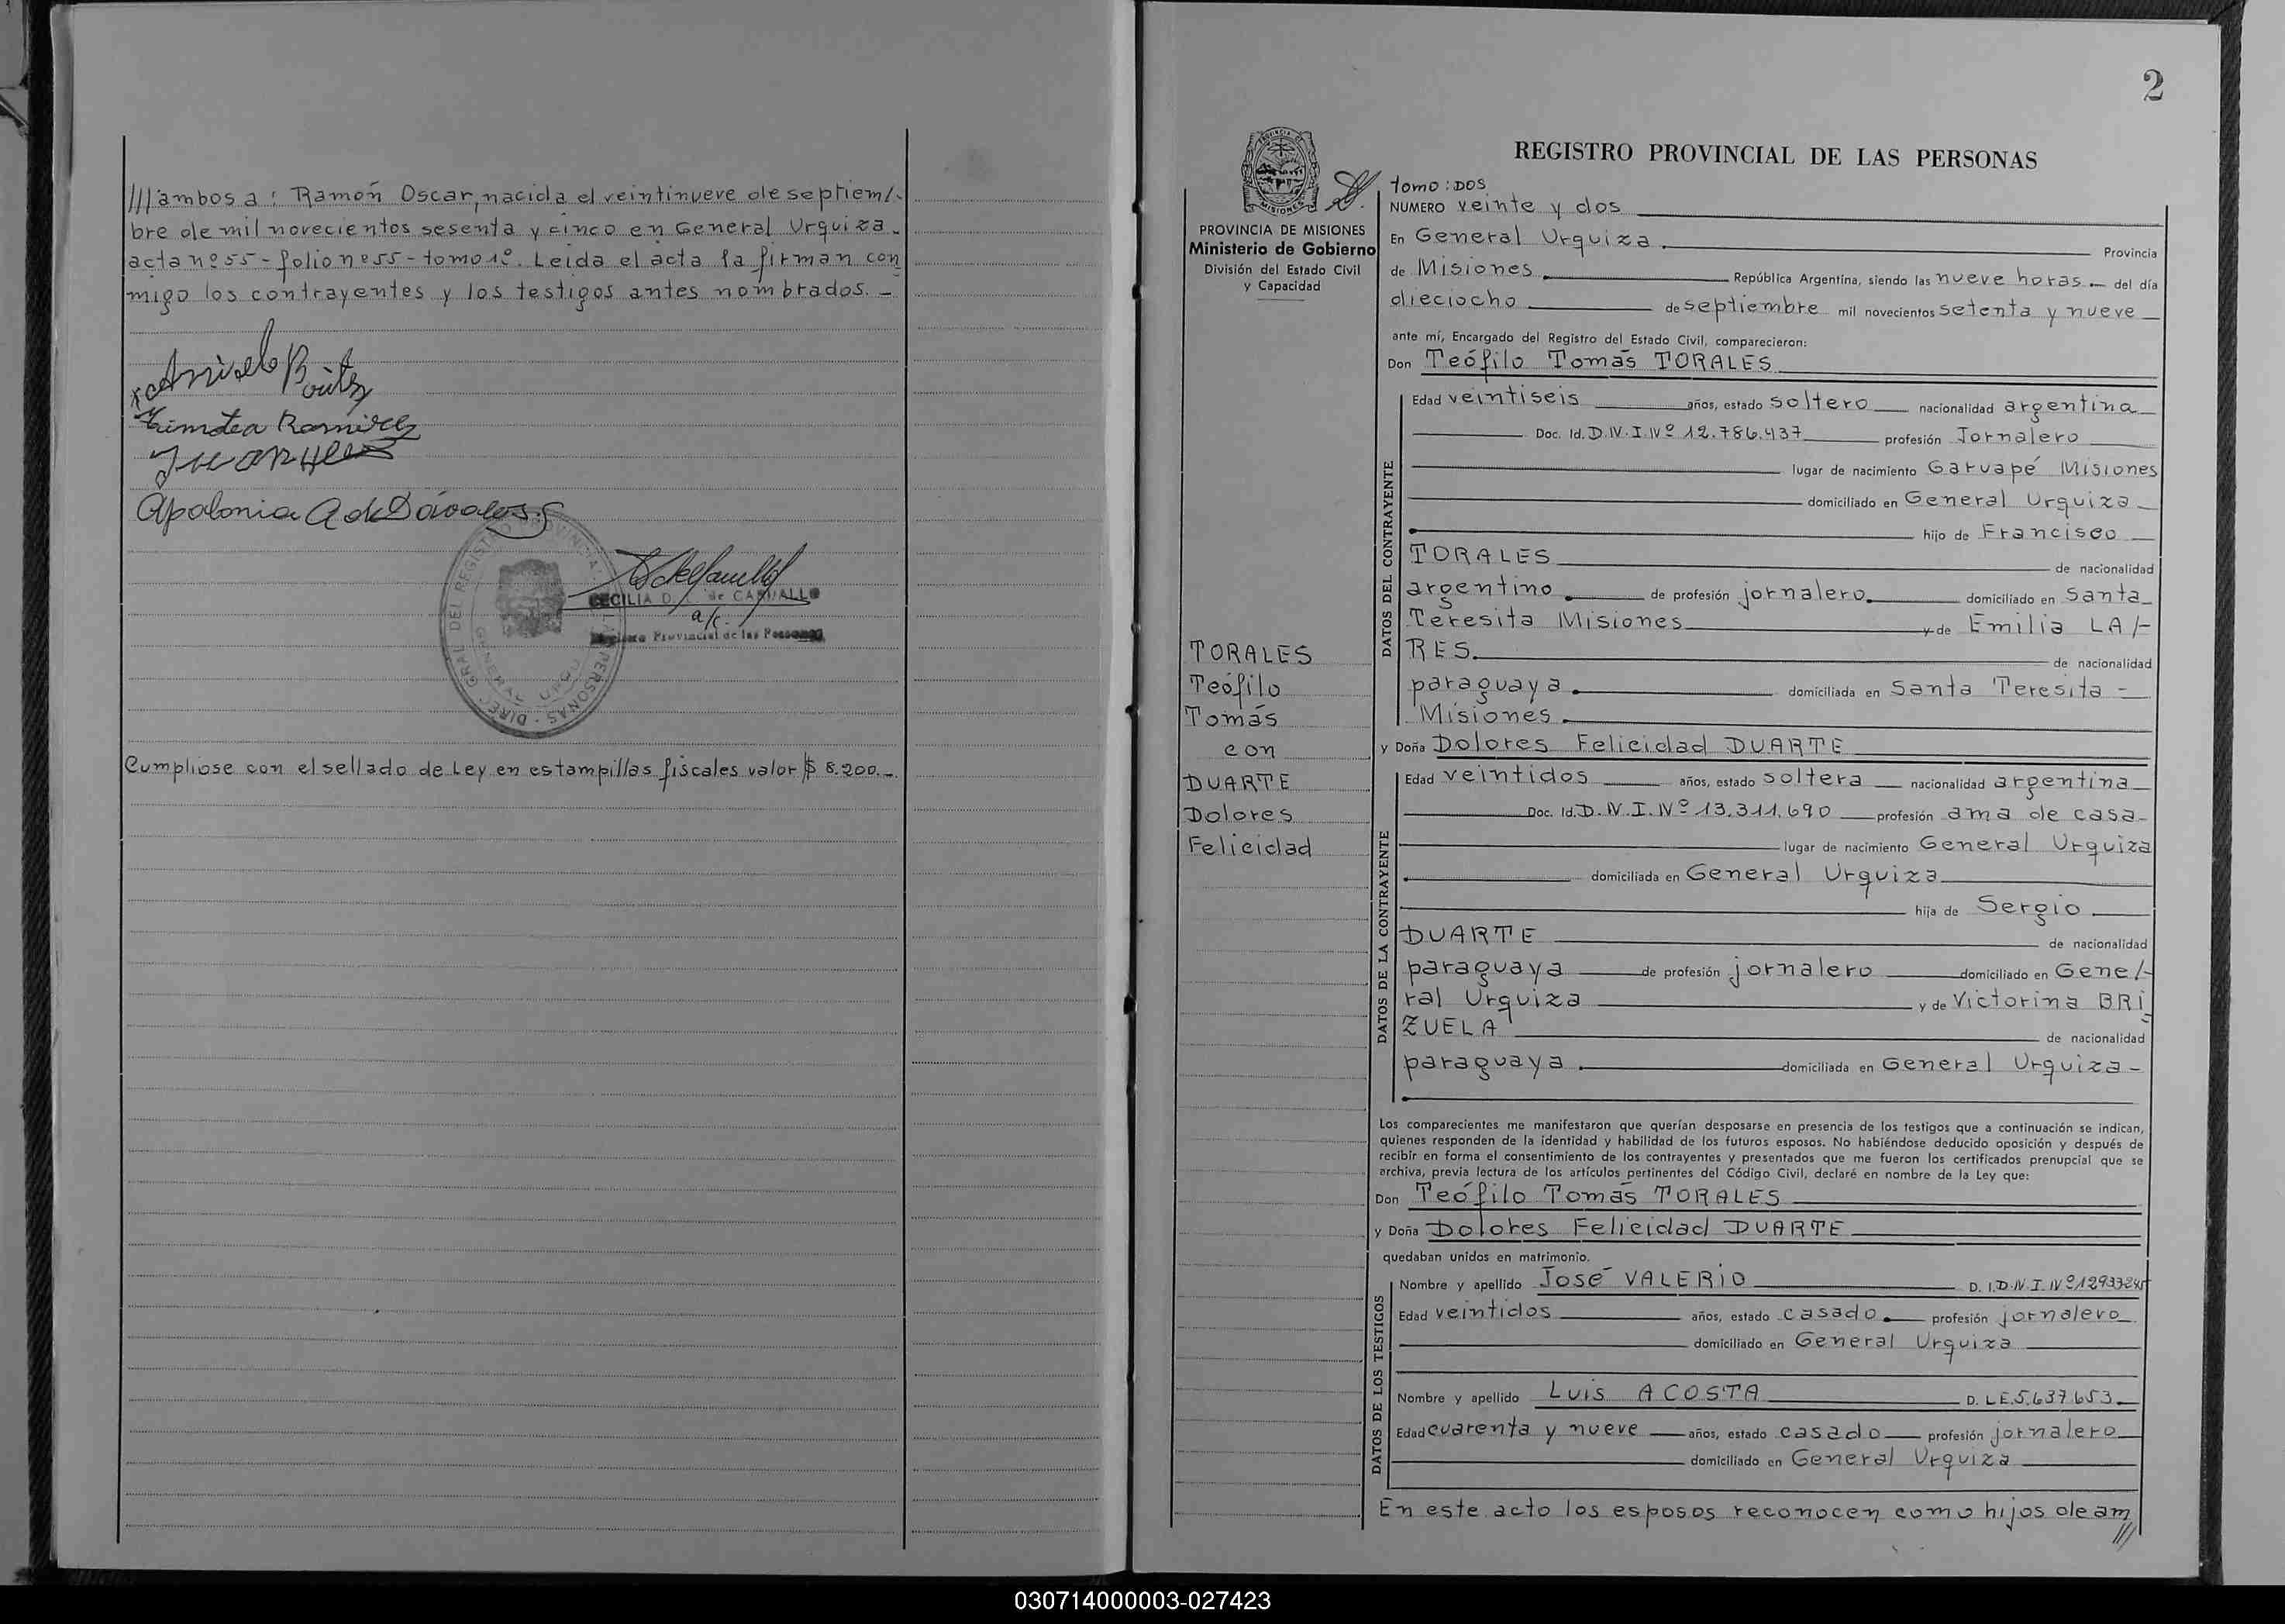 ///ambos a: Ramón Oscar, nacida el veintinueve de septiem/-
bre de mil novecientos sesenta y cinco en General Urquiza.
acta nº55-folio nº55-tomo 1º. Leida el acta la firman con
migo los contrayentes y los testigos antes nombrados.-
Timotea Ramirez
Apolonia A de Dávalos
CECILIA D. de CARVALLO
a/c.
Registro Provincial de las Personas
Cumpliose con el sellado de Ley en estampillas fiscales valor $ 8.200.-
2
PROVINCIA DE MISIONES
Ministerio de Gobierno
División del Estado Civil
y Capacidad
TORALES
Teófilo
Tomás
con
DUARTE
Dolores
Felicidad
REGISTRO PROVINCIAL DE LAS PERSONAS
tomo: DOS
NUMERO veinte y dos
En General Urquiza. Provincia
de Misiones. República Argentina, siendo las nueve horas.- del día
dieciocho de septiembre mil novecientos setenta y nueve
ante mí, Encargado del Registro del Estado Civil, comparecieron:
Don Teófilo Tomás TORALES
DATOS DEL CONTRAYENTE
Edad veintiseis años, estado soltero nacionalidad argentina
Doc. Id. D.N.I Nº 12.786.437 profesión Jornalero
lugar de nacimiento Garuapé Misiones
domiciliado en General Urquiza
hijo de Francisco
TORALES de nacionalidad
argentino. de profesión jornalero. domiciliado en Santa
Teresita Misiones y de Emilia LA/-
RES. de nacionalidad
paraguaya. domiciliada en Santa Teresita -
Misiones.
y Doña Dolores Felicidad DUARTE
DATOS DE LA CONTRAYENTE
Edad veintidos años, estado soltera nacionalidad argentina
Doc. Id. D.N.I. Nº 13.311.690 profesión ama de casa-
lugar de nacimiento General Urquiza
domiciliada en General Urquiza
hija de Sergio
DUARTE de nacionalidad
paraguaya de profesión jornalero domiciliado en Gene/-
ral Urquiza y de Victorina BRI
ZUELA de nacionalidad
paraguaya. domiciliada en General Urquiza-
Los comparecientes me manifestaron que querían desposarse en presencia de los testigos que a continuación se indican,
quienes responden de la identidad y habilidad de los futuros esposos. No habiéndose deducido oposición y después de
recibir en forma el consentimiento de los contrayentes y presentados que me fueron los certificados prenupcial que se
archiva, previa lectura de los artículos pertinentes del Código Civil, declaré en nombre de la Ley que:
Don Teófilo Tomás TORALES
y Doña Dolores Felicidad DUARTE
quedaban unidos en matrimonio.
DATOS DE LOS TESTIGOS
Nombre y apellido José VALERIO D. I. D.N.I. Nº
Edad veintidos años, estado casado. profesión jornalero
domiciliado en General Urquiza
Nombre y apellido Luis ACOSTA D. L E. 5.637.653.
Edad cuarenta y nueve años, estado casado profesión jornalero
domiciliado en General Urquiza
En este acto los esposos reconocen como hijos de am
///
030714000003-027423